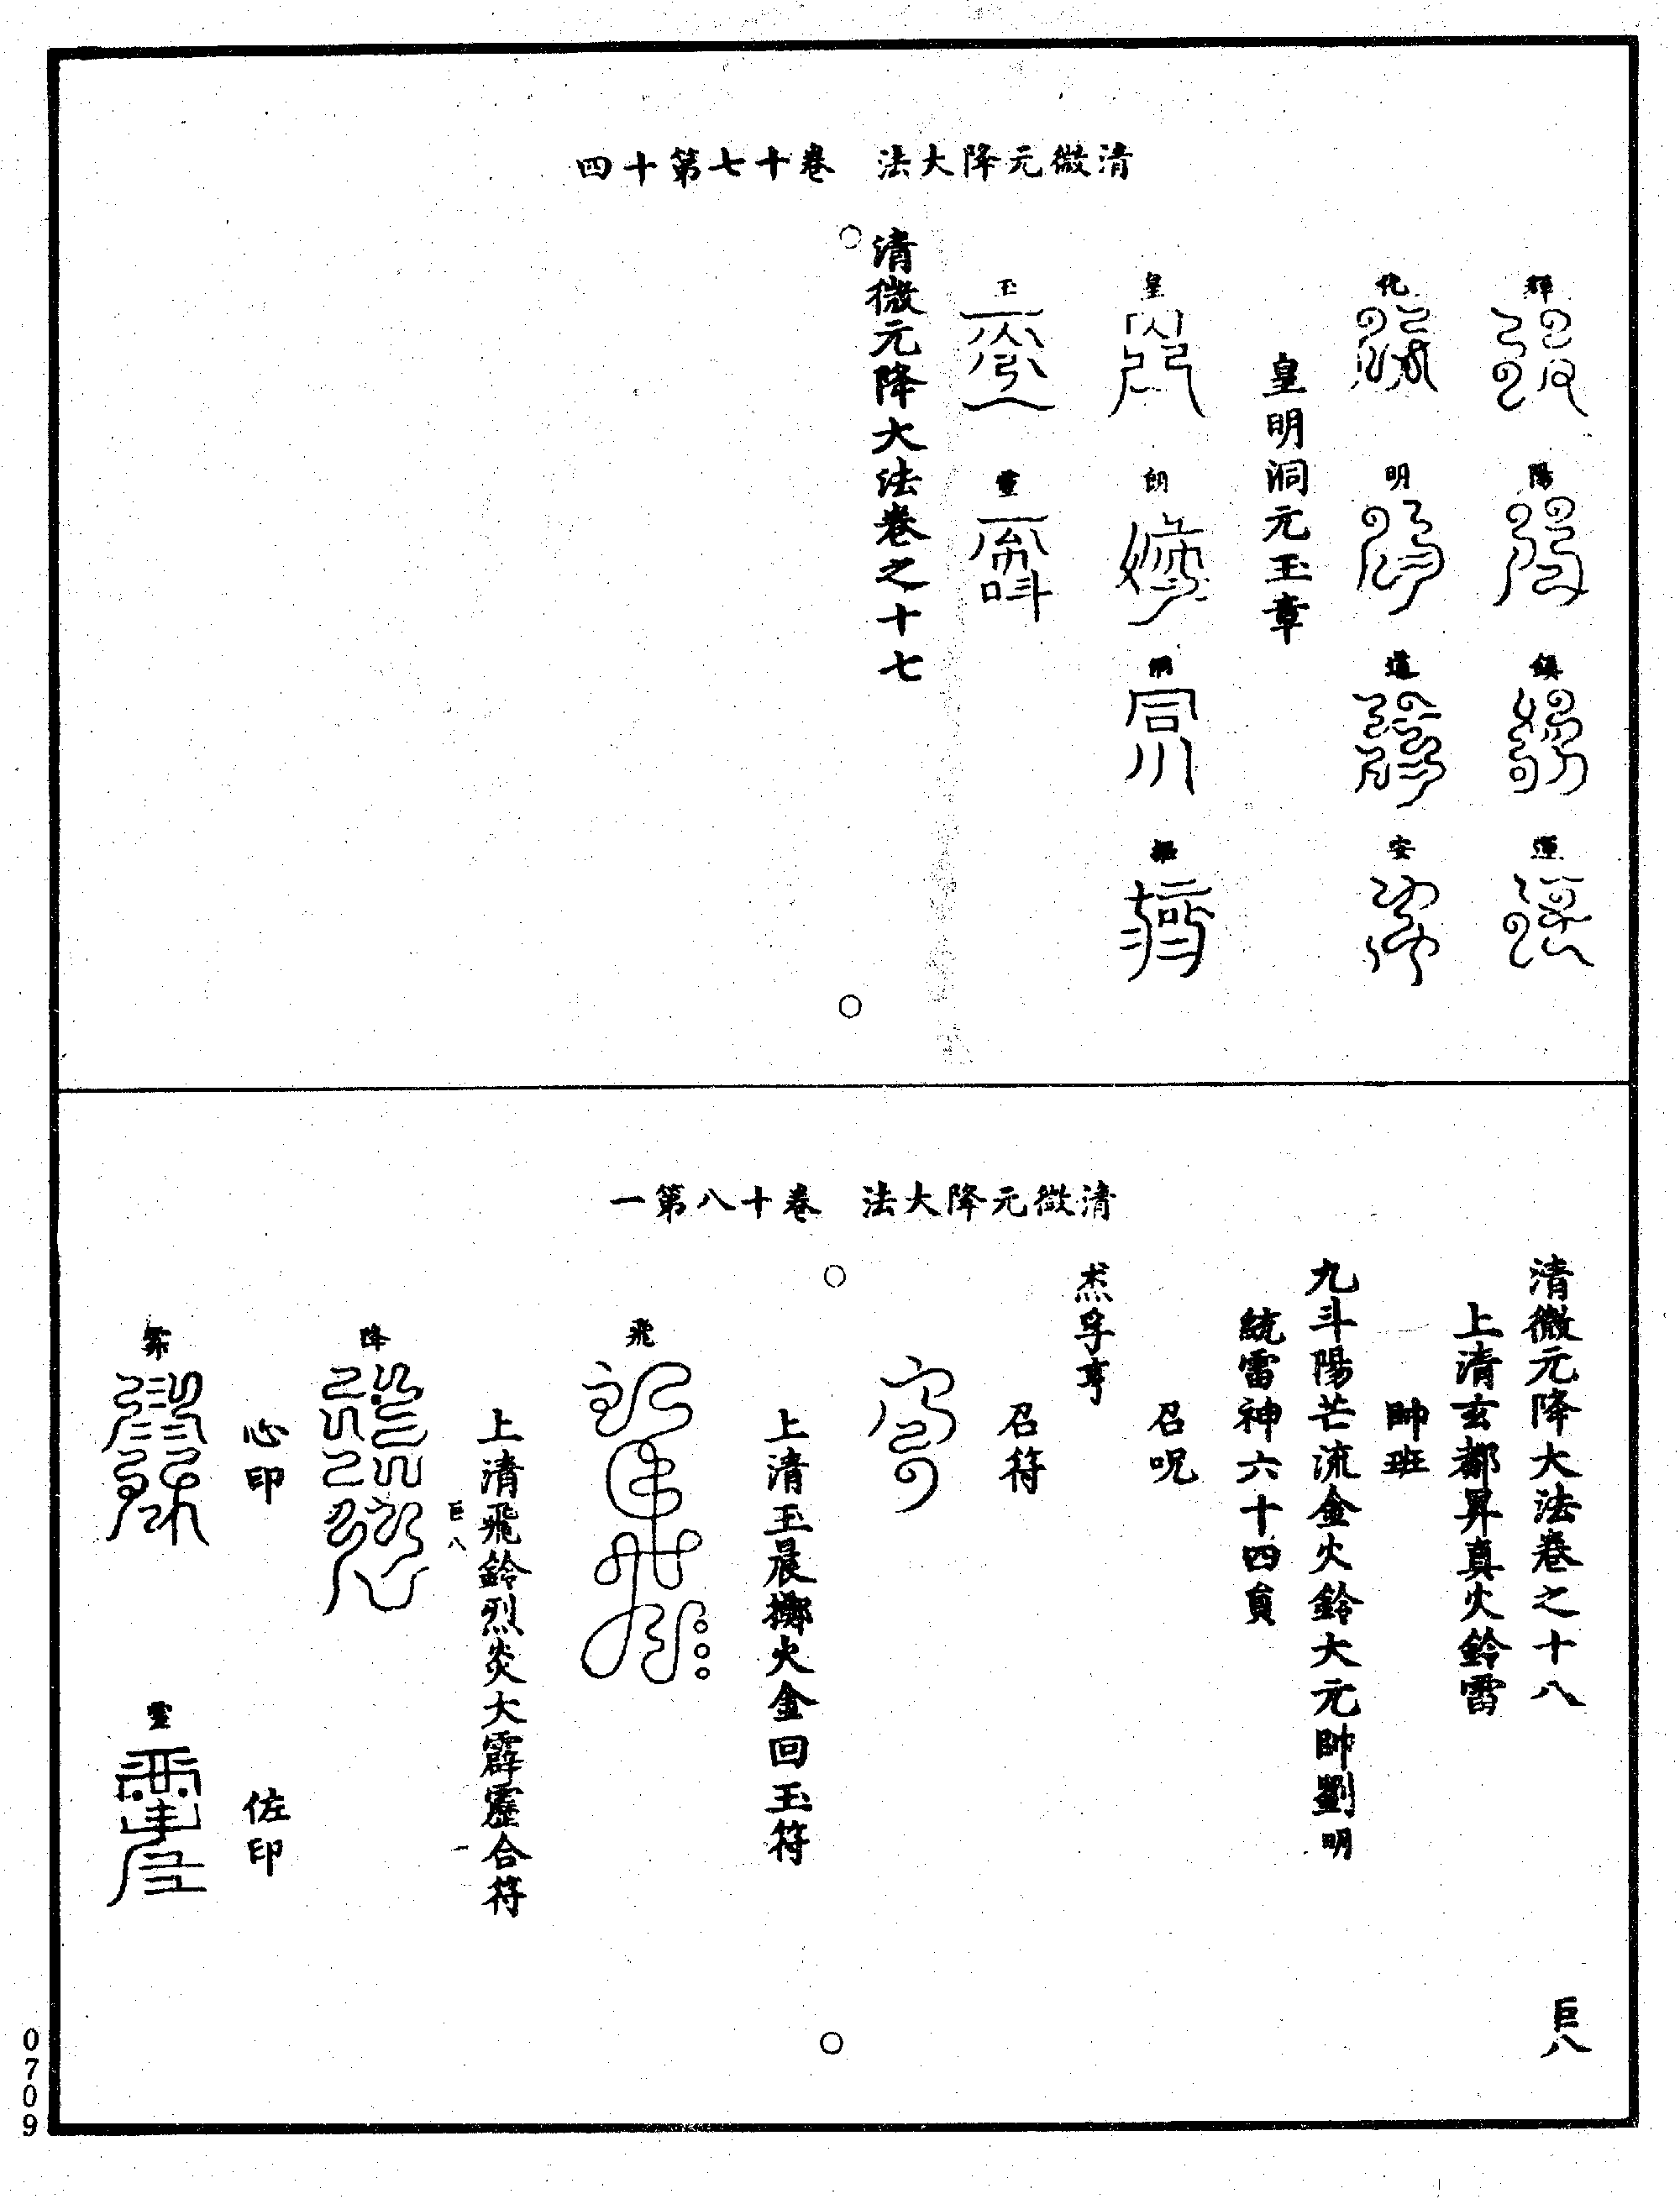 清微元降大法 卷十七第十四
輝 陽 鎮 運
化 明 道 安
皇明洞元玉章
皇 朗 樞
玉 靈
清微元降大法卷之十七
清微元降大法 卷十八第一
清微元降大法卷之十八 巨八
上清玄都昇真火鈴雷
帥班
九斗陽芒流金火鈴大元帥劉明
統雷神六十四員
召呪
孚亨
召符
上清玉晨擲火金回玉符
飛
上清飛鈴烈炎大霹靂合符
巨八
降
心印 佐印
靈
0709